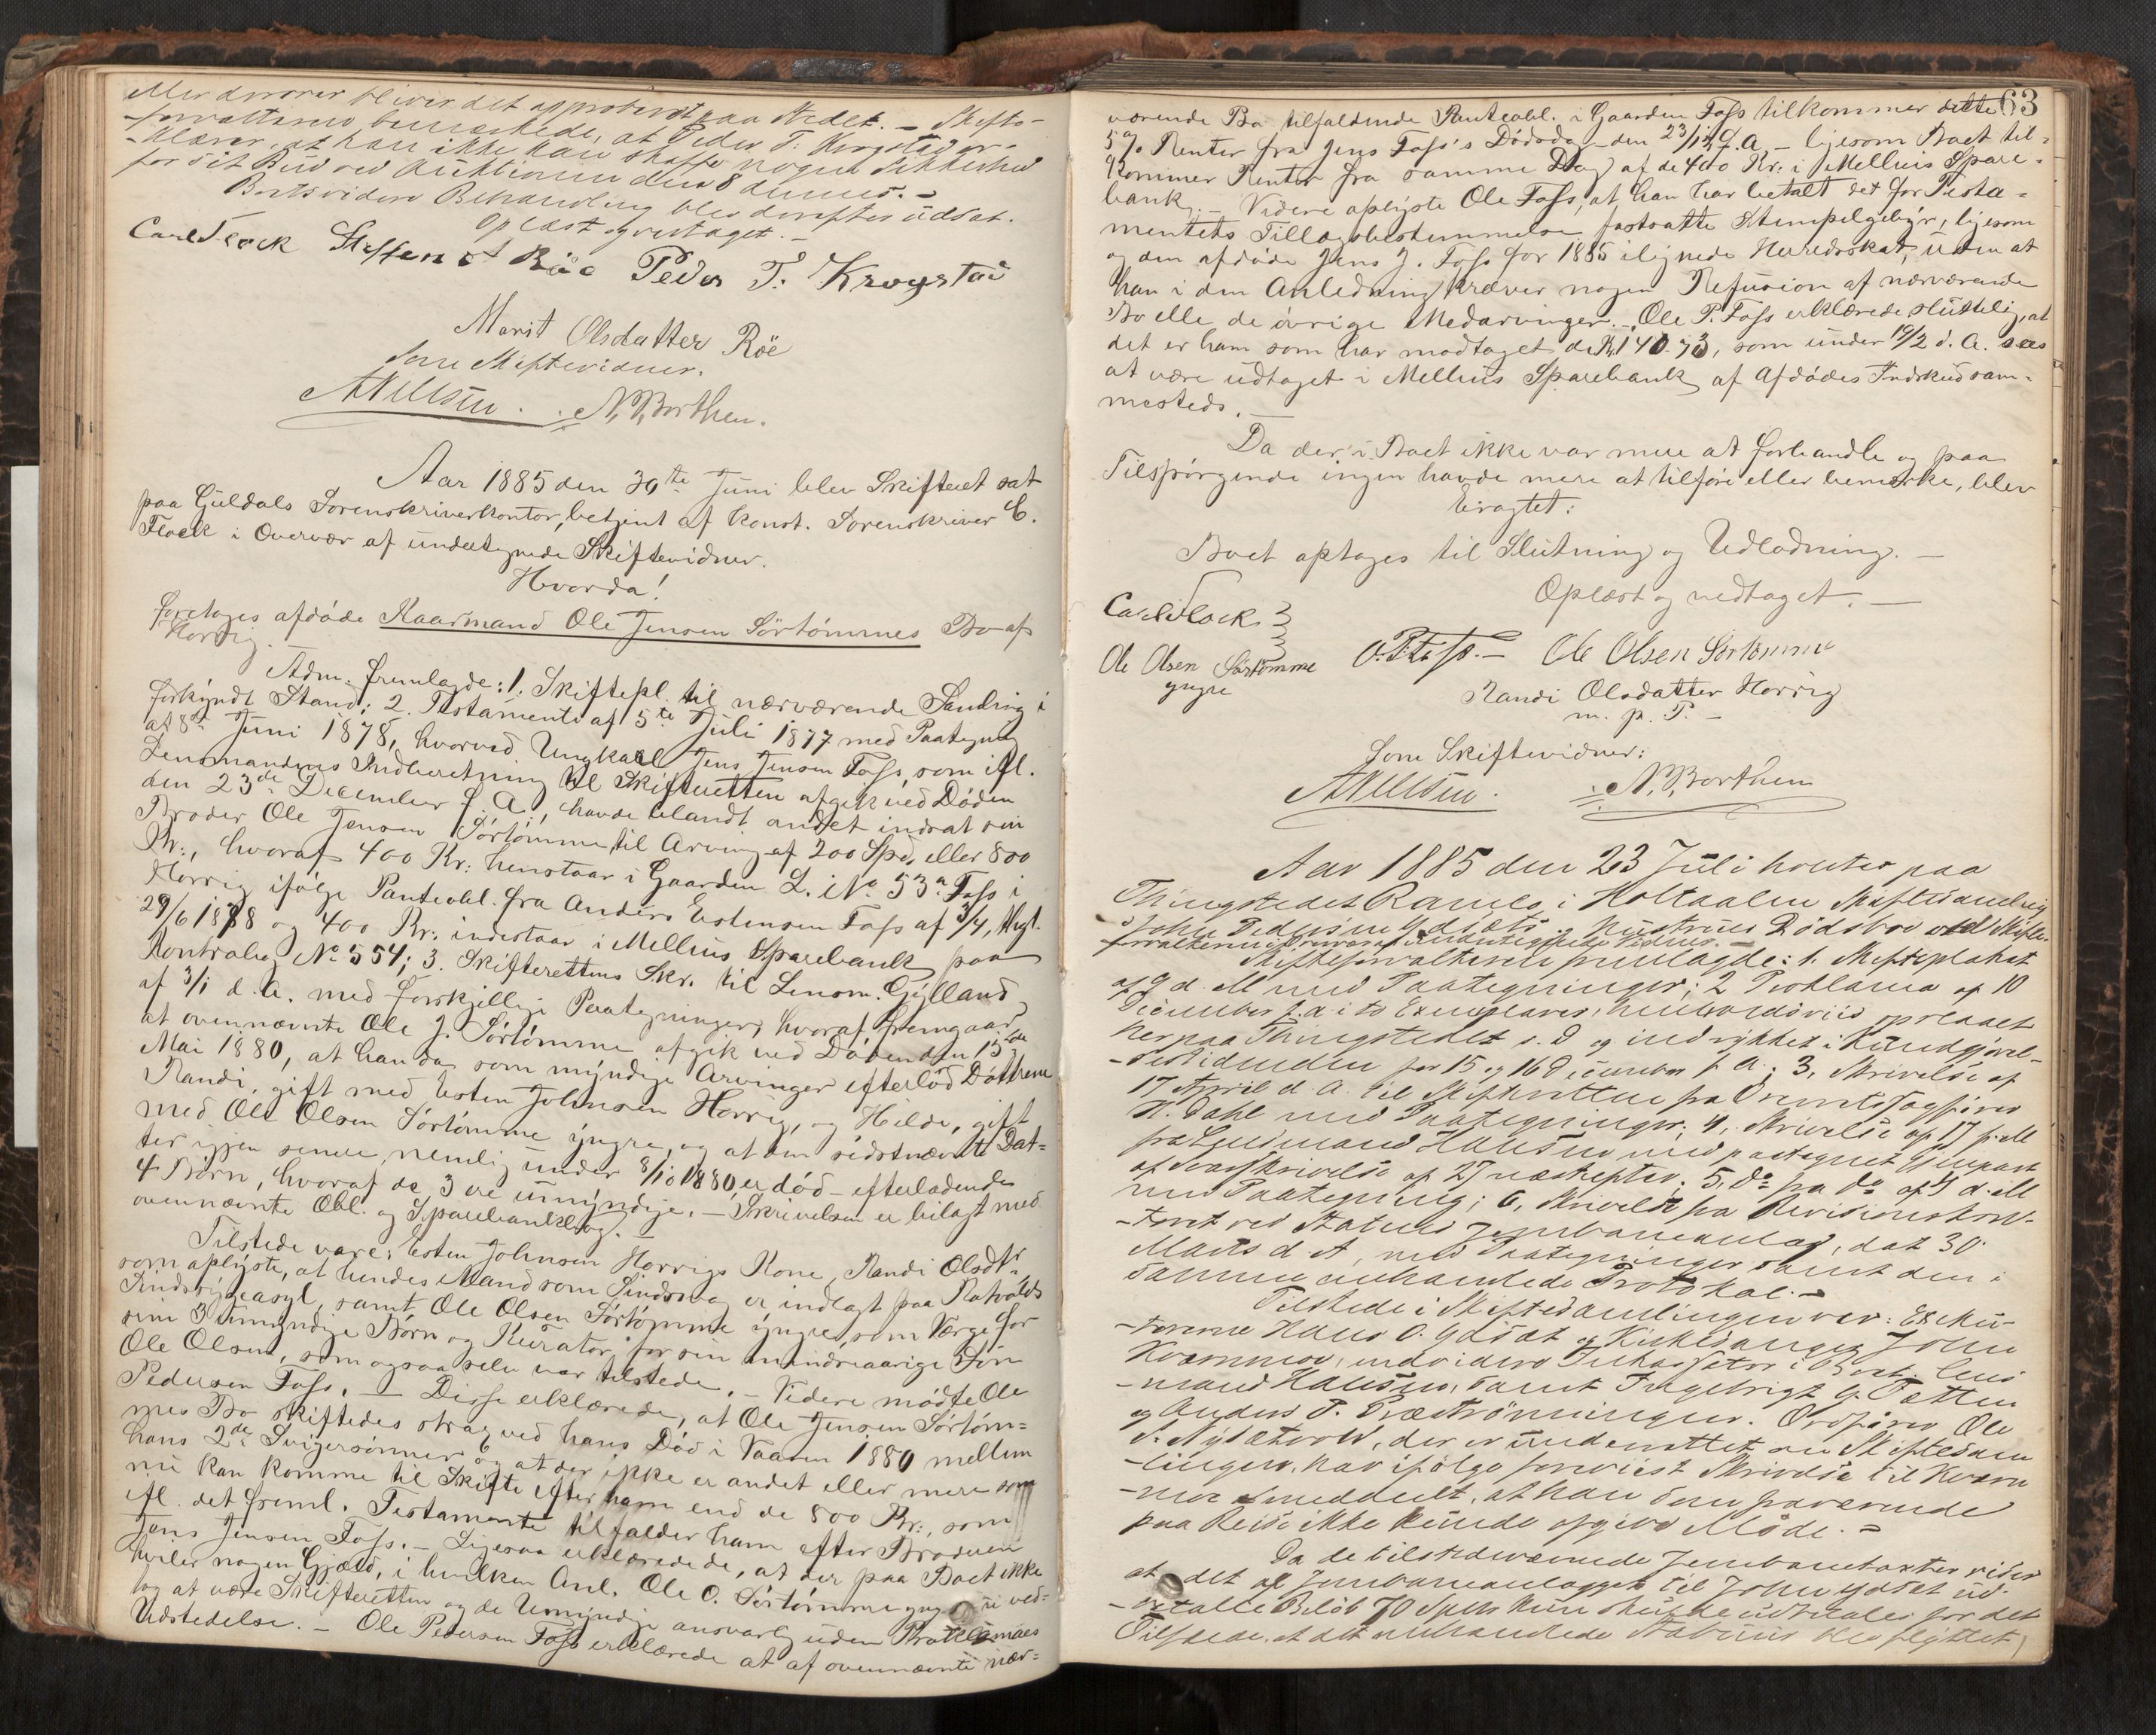 eller derover bliver det approberet paa Stedet. – Skifte-
-forvalteren bemærkede, at Peder T. Krogstad er-
-klærer, at han ikke kan skaffe nogen Sikkerhed
for sit Bud ved Auktionen den 8 dennes. –
Boets videre Behandling blev derefter udsat.
Oplæst og vedtaget. –
Carl Flock Steffen Röe Peder T. Krogstad
Marit Olsdatter Röe
Som Skiftevidner.
A Nilsen . N. Borthen.
Aar 1885 den 30te Juni blev Skifteret sat
paa Guldals Sorenskriverkontor, betjent af konst. Sorenskriver C.
Flock i Overvær af undertegnede Skiftevidner.
Hvorda!
foretoges afdøde Kaarmand Ole Jensen Sörtömmes Bo af
Horrig.
Adm. fremlagde: 1. Skiftepl. til nærværende Samling i
forkyndt Stand; 2. Testamente af 5te Juli 1877 med Paategning
af 8de Juni 1878, hvorved Ungkarl Jens Jensen Foss, som ifl.
Lensmandens Indberetning til Skifteretten afgik ved Döden
den 23de December f. A., havde blandt andet indsat sin
Broder Ole Jensen Sörtömme til Arving af 200 Spd. eller 800
Kr., hvoraf 400 Kr. henstaar i Gaarden L. No 53a Foss i
Horrig ifølge Panteobl. fra Anders Estensen Foss af 3/4, thgl.
29/6 1878 og 400 Kr. indestaar i Melhus Sparebank paa
Kontrabog No 554; 3. Skifterettens Skr. til Lensm. Gylland
af 3/1 d. A. med forskjellige Paategninger, hvoraf fremgaar,
at ovennævnte Ole J. Sörtömme afgik ved Döden den 15de
Mai 1880, at han da som myndige Arvinger efterlod Döttrene
Randi, gift med Esten Johnsen Horrig, og Hilde, gift
med Ole Olsen Sörtömme yngre, og at den sidstnævnte Dat-
ter igjen senere, nemlig under 8/10 1880, er död – efterladende
4 Börn, hvoraf de 3 ere umyndige. – Skrivelsen er bilagt med
ovennævnte Obl. og Sparebankbog. –
Tilstede vare: Esten Johnsen Horrigs Kone, Randi Olsdtr.,
som oplyste, at hendes Mand som Sindssvag er indlagt paa Rotvolds
Sindssygeasyl, samt Ole Olsen Sörtömme yngre, som Værge for
sine 3 umyndige Börn og Kurator for sin mindreaarige Sön
Ole Olsen, som ogsaa selv var tilstede. – Videre mödte Ole
Pedersen Foss. – Disse erklærede, at Ole Jensen Sörtöm-
mes Bo skiftedes strax ved hans Död i Vaaren 1880 mellem
hans 2de Svigersönner og at der ikke er andet eller mere som
nu kan komme til Skifte efter ham end de 800 Kr., som
ifl. det freml. Testamente tilfalder ham efter Broderen
Jens Jensen Foss. – Ligesaa erklærede de, at der paa Boet ikke
hviler nogen Gjæld, i hvilken Anl. Ole O. Sörtömme yngre ved-
tog at være Skifteretten og de Umyndige ansvarlig uden Proklamaes
Udstedelse. – Ole Pedersen Foss erklærede at af ovennævnte nær-
63
værende Bo tilfaldende Panteobl. i Gaarden Foss tilkommer dette
5% Renter fra Jens Foss's Dödsdag – den 23/12 f. A. – ligesom Boet til-
kommer Renter fra samme Dag af de 400 Kr. i Melhus Spare-
bank. – Videre oplyste Ole Foss, at han har betalt det for Testa-
mentets Tillægsbestemmelse fastsatte Stempelgebyr, ligesom
og den afdöde Jens J. Foss for 1885 ilignede Herredsskat, uden at
han i den Anledning kræver nogen Refusion af nærværende
Bo elle de övrige Medarvinger. – Ole P. Foss erklærede sluttelig, at
det er ham som har modtaget de Kr 140.73, som under 19/2 d. A. sees
at være udtaget i Melhus Sparebank af Afdödes Indskud sam-
mesteds. –
Da der i Boet ikke var mere at forhandle og paa
Tilspörgende ingen havde mere at tilföre eller bemærke, blev
Eragtet:
Boet optages til Slutning og Udlodning. –
Oplæst og vedtaget. –
Carl Flock
Ole Olsen Sörtömme yngre O. P. Foss. – Ole Olsen Sörtömme
Randi Olsdatter Horrig
m. p. P. –
Som Skiftevidner:
A Nilsen . N. Borthen
Aar 1885 den 23 Juli holdtes paa
Thingstedet Ramlo i Holtaalen Skiftesamling
i John Pedersen Gdsets og Hustrues Dödsbo ved Skifte-
forvalteren i Overvær af undertegnede Vidner. –
Skifteforvalteren fremlagde: 1. Skifteplakat
af 9 d. M med Paategninger; 2 Proklama af 10
December f. a. i to Exemplarer, henholdsvis oplæst
her paa Thingstedet s. D og indrykket i Kundgjörel-
-sestidenden for 15 og 16 December f. A.; 3, Skrivelse af
17 April d. A. til Skifteretten fra Overretssagförer
K. Dahl med Paategninger; 4, Skrivelse af 17 f. M
fra Lensmand Hansen med paategnet Gjenpart
af Svarskrivelse af 27 næstefter; 5, do fra do af 4 d. M
med Paategning; 6, Skrivelse fra Revisionskon-
-toret ved Statens Jernbaneanlæg, dat 30
Marts d. A, med Paategninger samt den i
samme omhandlede Protokol. –
Tilstede i Skiftesamlingen var: Exeku-
-torerne Hans O. Gdset og Kirkesanger John
Kvernmo, endvidere Inkassator i Boet Lens-
-mand Hansen, samt Ingebrigt G. Tætten
og Anders P. Præströnningen. Ordförer Ole
, der er underrettet om Skiftesam-
-lingen, har ifölge foreviist Skrivelse til Kvern-
-moe meddeelt, at han som fraværende
paa Reise ikke kunde afgive Möde. –
Da de tilstedeværende
at det af Jernbaneanlægget til John Gdset ud-
-betalte Belöb 70 Spdlr kun skulde udbetales for det
Tilfælde, at det omhandlede Stabuur blev flyttet,